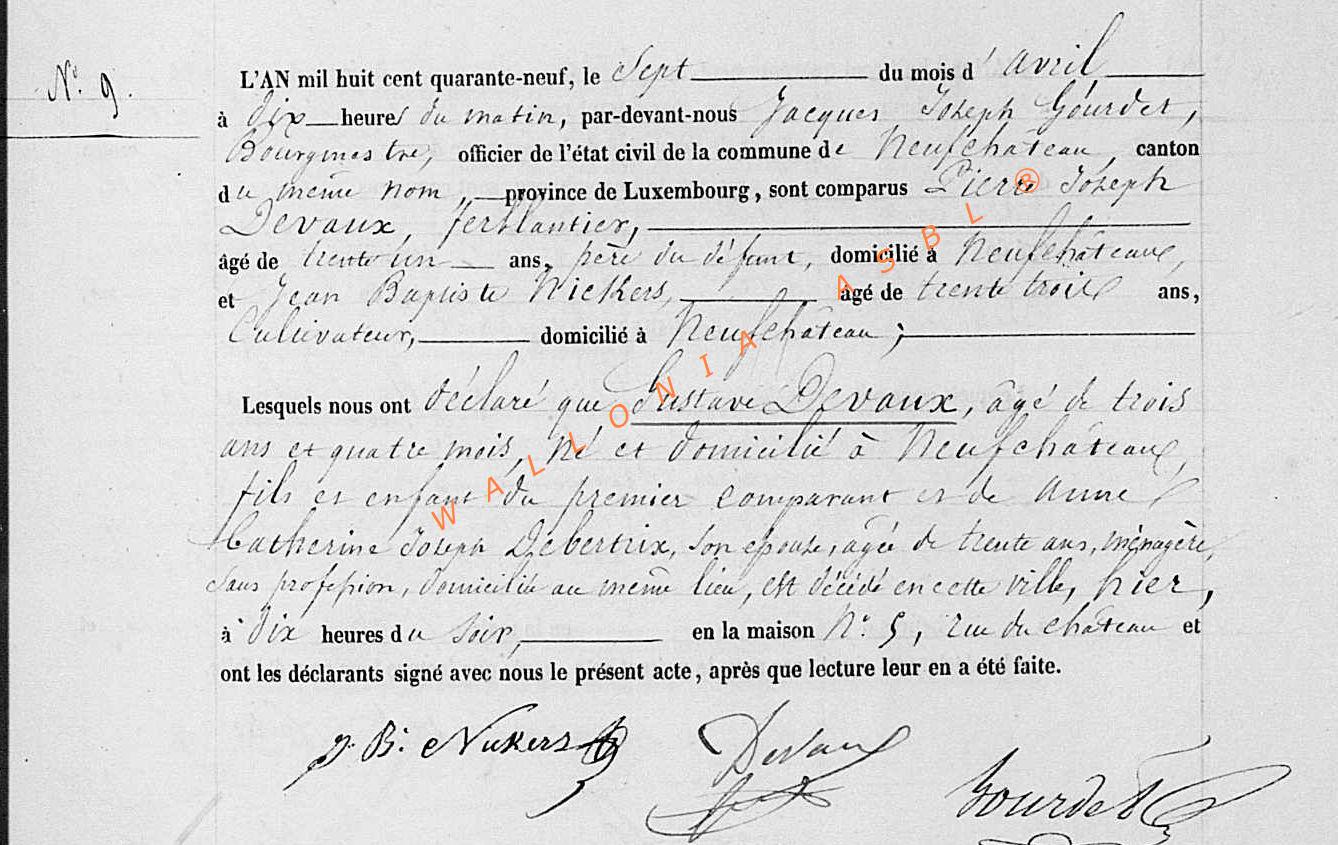 N.º 9.
L'AN mil huit cent quarante-neuf, le Sept du mois d' avril,
à dix heures du matin, par-devant-nous Jacques Joseph Gourdet,
Bourgmestre, officier de l'état civil de la commune de Neufchâteau, canton
du même nom, province de Luxembourg, sont comparus Pierre Joseph
Devaux, ferblantier,
âgé de trente un ans, père du défunt, domicilié à Neufchâteau,
et Jean Baptiste Nickers, âgé de trente trois ans,
Cultivateur, domicilié à Neufchâteau;
Lesquels nous ont déclaré que Gustave Devaux, âgé de trois
ans et quatre mois, né et domicilié à Neufchâteau,
fils et enfant du premier comparant et de Anne
Catherine Joseph Debertrix, son épouse, agée de trente ans, ménagère,
sans profession, domiciliée au même lieu, est décédé en cette ville, hier,
à dix heures du soir, en la maison N.º 5, rue du château et
ont les déclarants signé avec nous le présent acte, après que lecture leur en a été faite.
J. B. Nickers Devaux Gourdet
WALLONIA ASBL ®